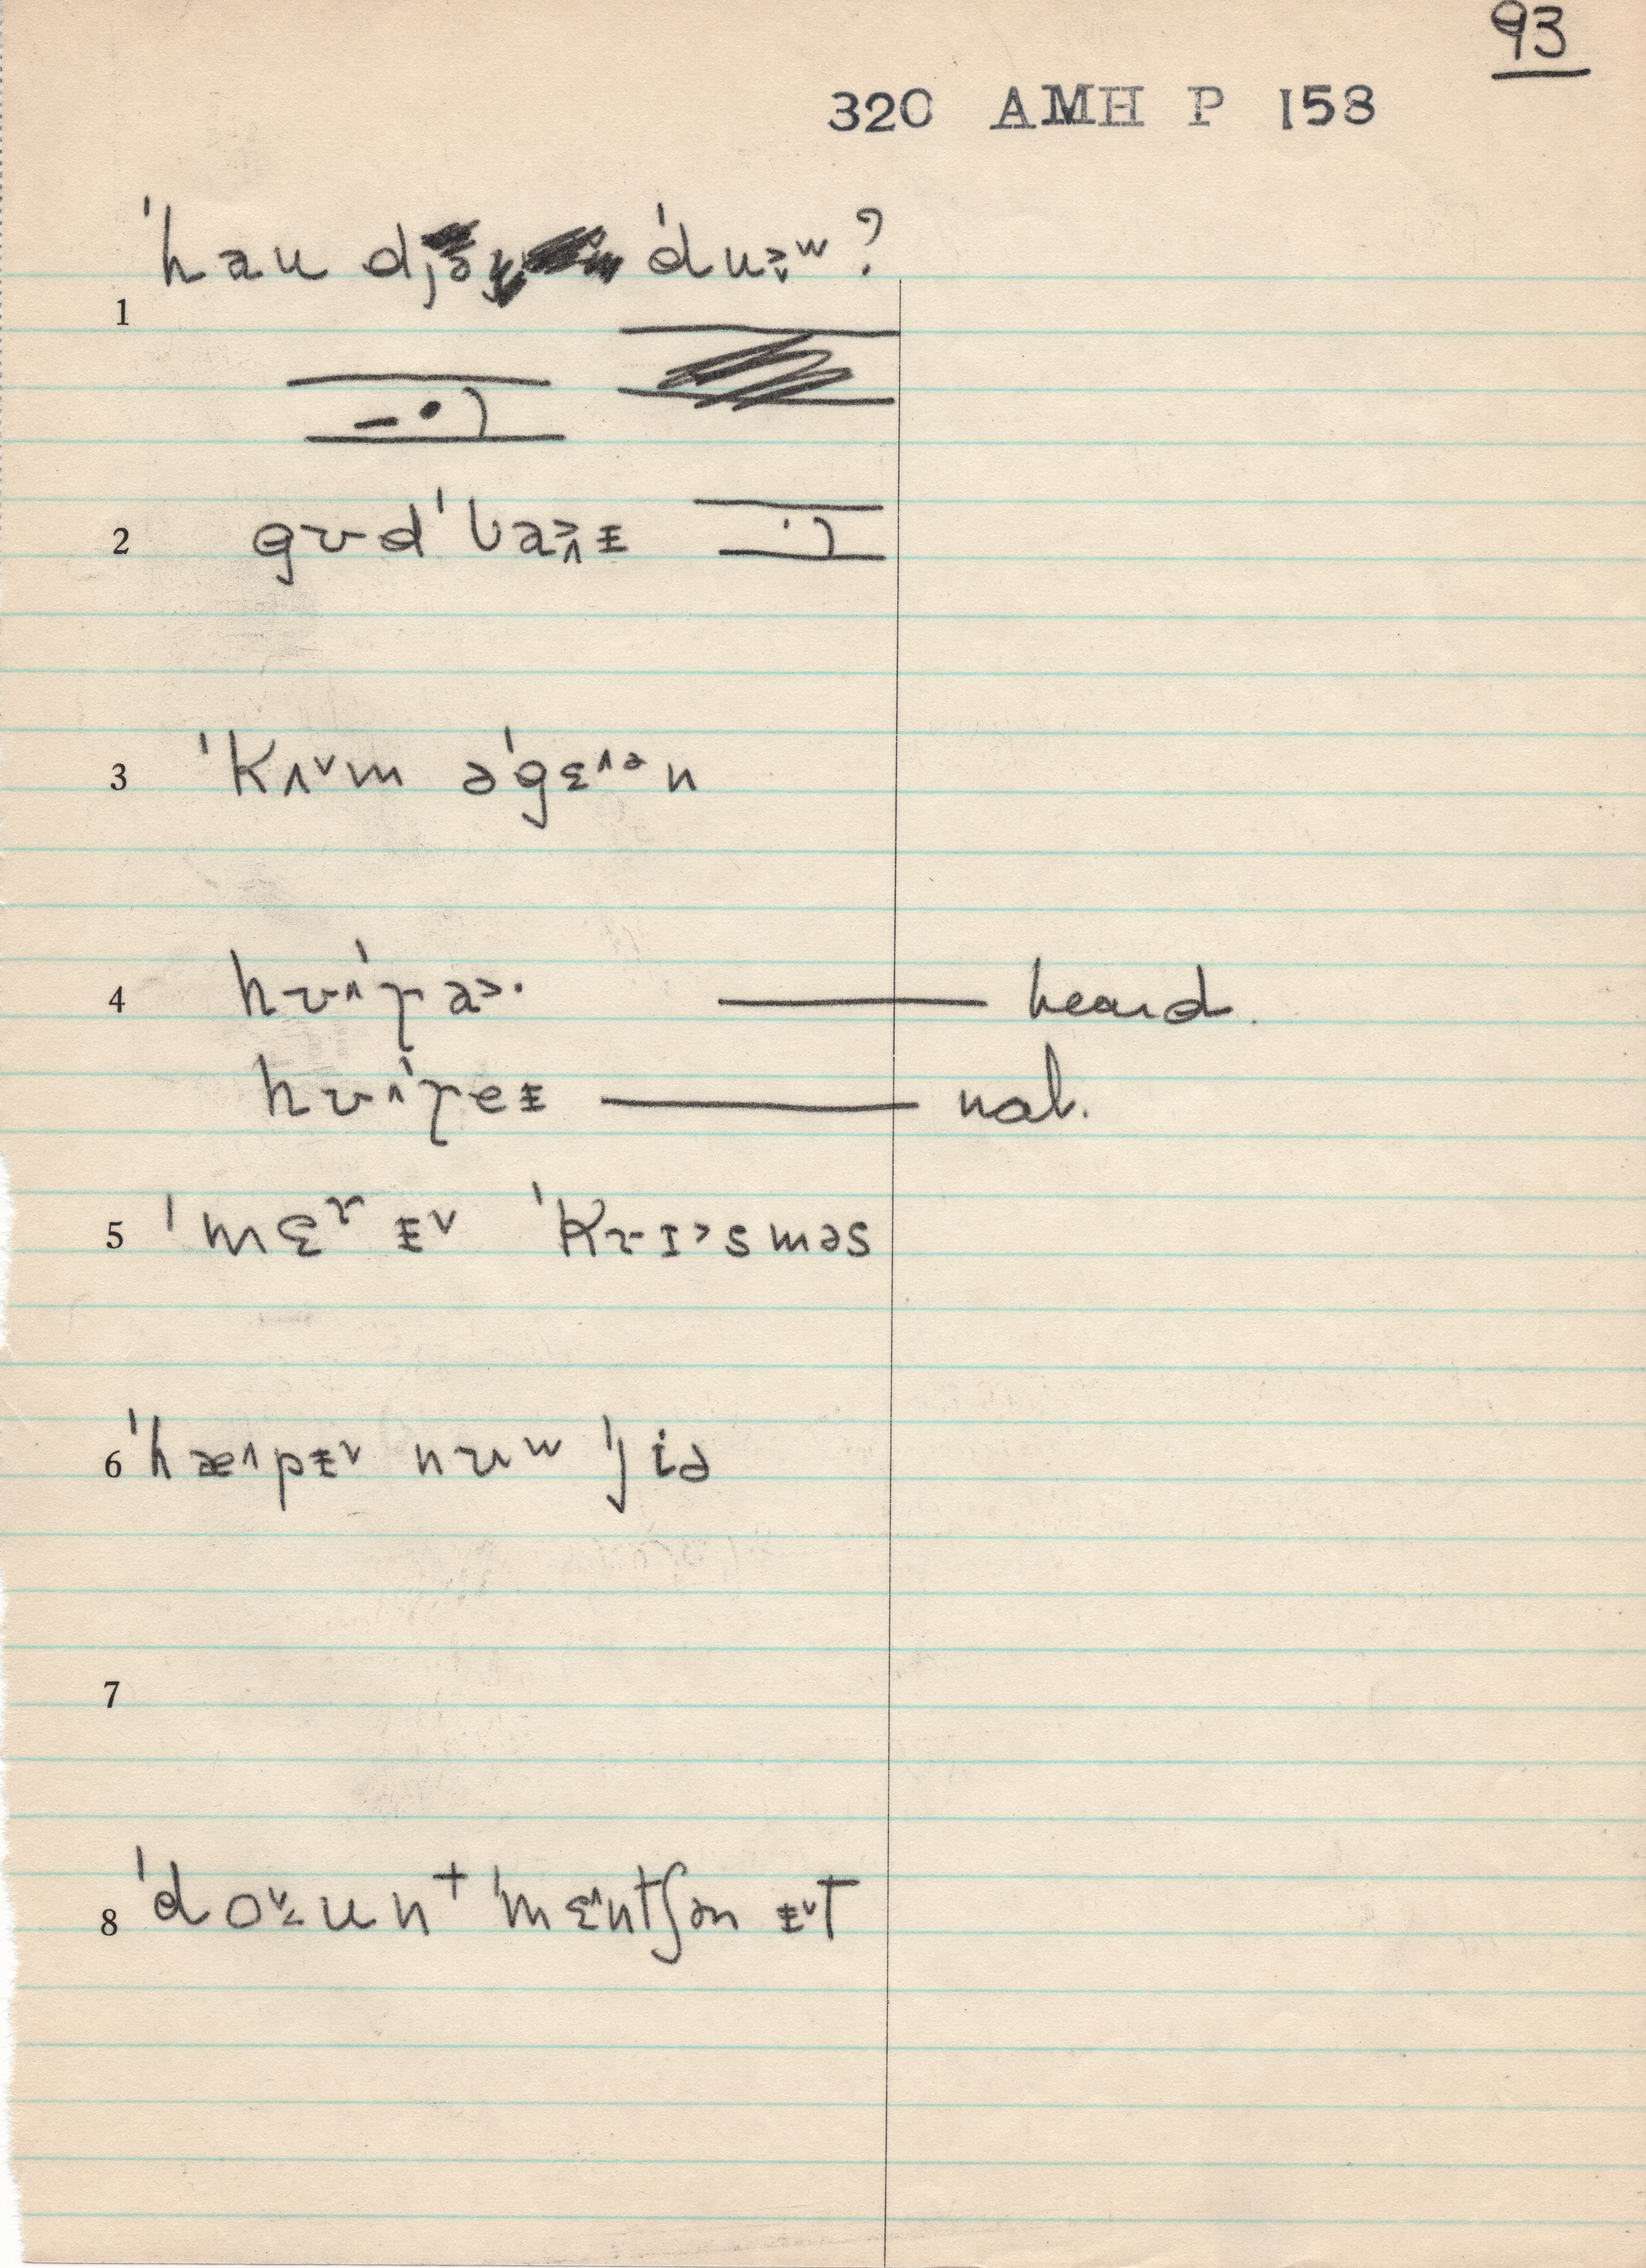 93
320 AMH P 158
ˈhau dj ˈduʷ?
1
2 gʊdˈbaɪ
3 ˈkʌ˅m əˈgɛ˄ᵊn
4 hʊ˄ˈra˃· — heard.
hʊ˄ˈreɨ — nat.
5 ˈmɛʳɨ˅ ˈkrɪ˃sməs
6 ˈhæ˄pɨ˅ nʊʷ ˈjiə
7
8 ˈdo˅unᵗ ˈmɛ˄ntʃən ɨ˅t